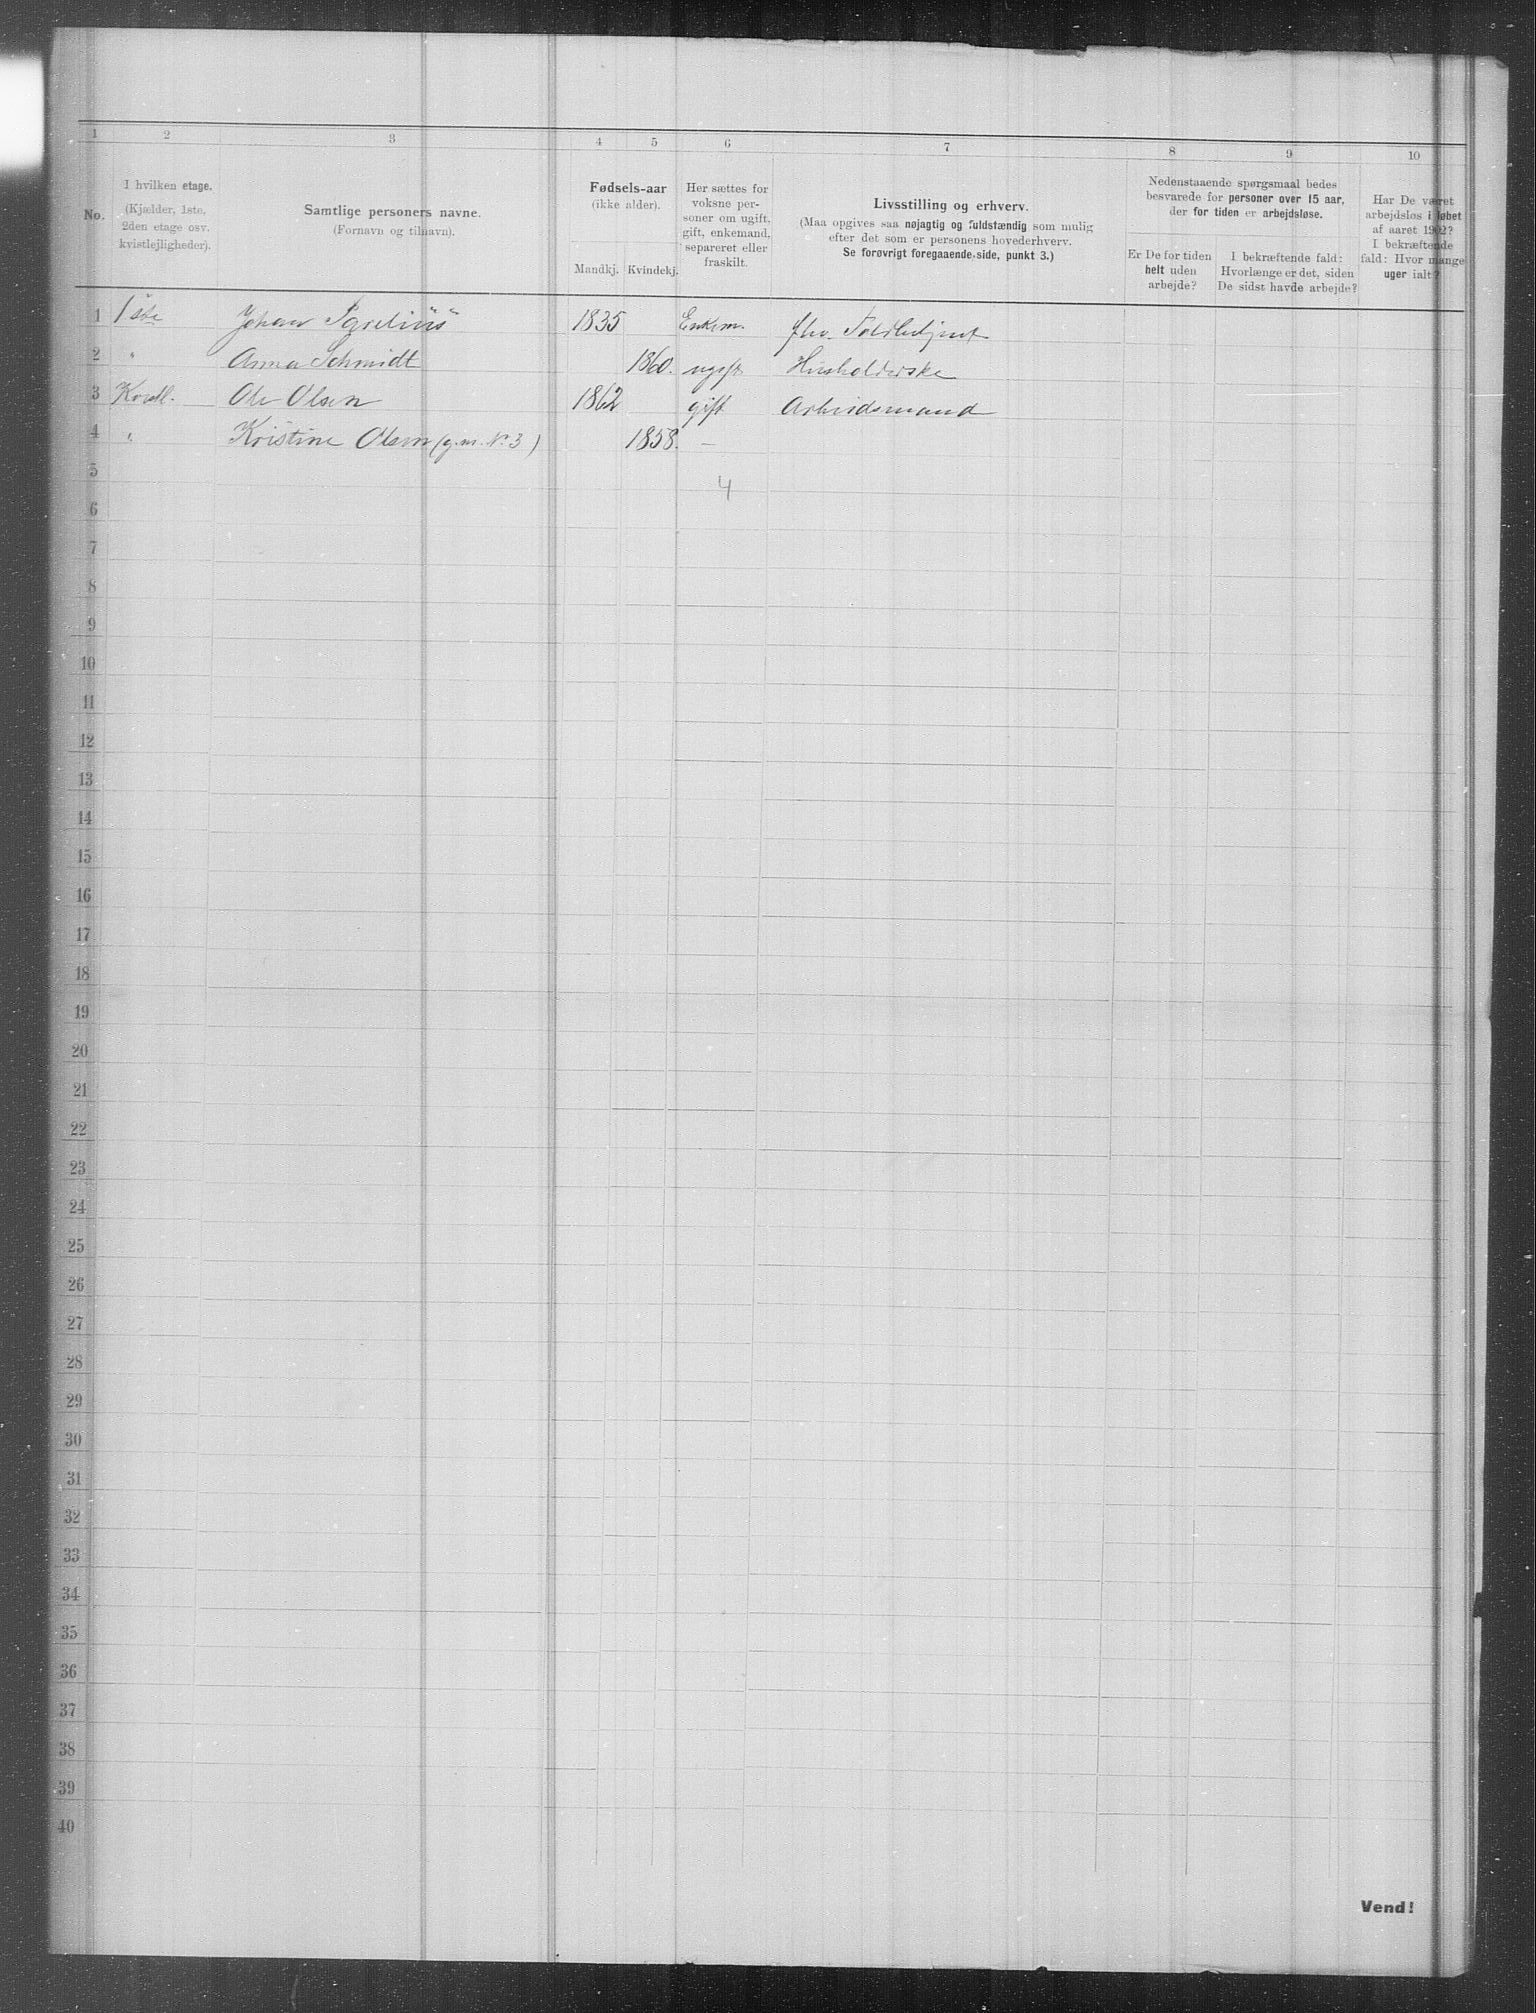 1 2 3 4 5 6 7 8 9 10
No.
I hvilken etage.
(Kjælder, 1ste,
2den etage osv.
kvistlejligheder).
Samtlige personers navne.
(Fornavn og tilnavn).
Fødsels-aar
(ikke alder).
Mandkj. Kvindekj.
Her sættes for
voksne per-
soner om ugift,
gift, enkemand,
separeret eller
fraskilt.
Livsstilling og erhverv.
(Maa opgives saa nøjagtig og fuldstændig som mulig
efter det som er personens hovederhverv.
Se forøvrigt foregaaende side, punkt 3.)
Nedenstaaende spørgsmaal bedes
besvarede for personer over 15 aar,
der for tiden er arbejdsløse.
Er De for tiden
helt uden
arbejde?
I bekræftende fald:
Hvorlænge er det, siden
De sidst havde arbejde?
Har De været
arbejdsløs i løbet
af aaret 1902?
I bekræftende
fald: Hvor mange
uger ialt?
1 1ste Johan 1835 Enkem. fhv. Toldbetjent
2 " Anna Schmidt 1860. ugift Husholderske
3 Ole Olsen 1862 gift Arbeidsmand
4 " Kristine Olsen (g.m. N. 3) 1858. —
5 4
6
7
8
9
10
11
12
13
14
15
16
17
18
19
20
21
22
23
24
25
26
27
28
29
30
31
32
33
34
35
36
37
38
39
40
Vend!